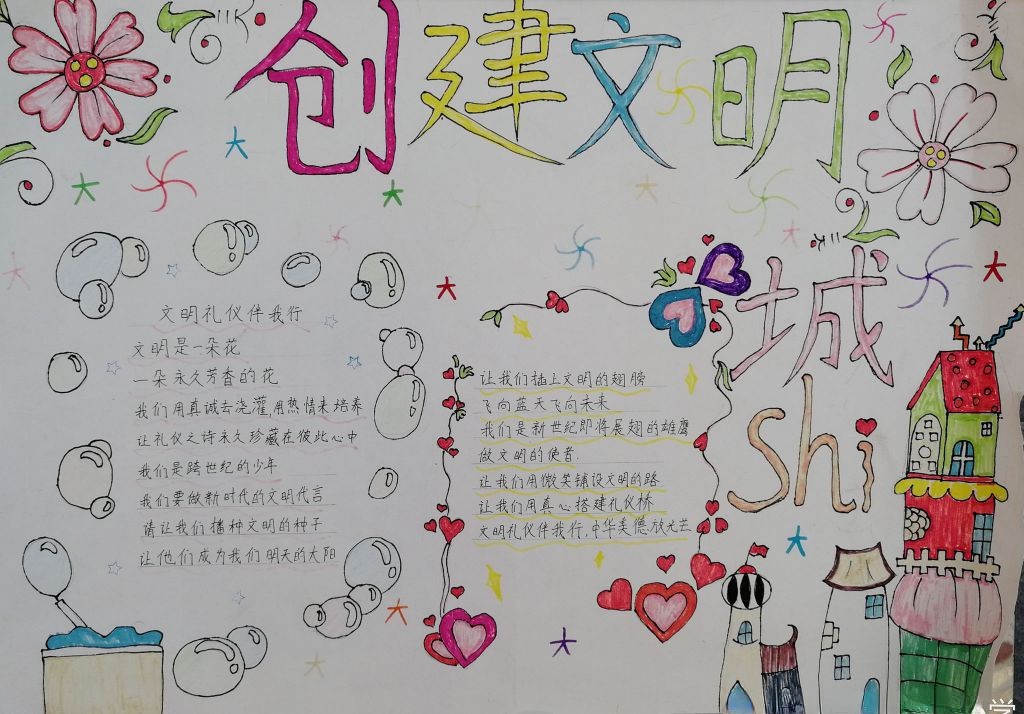 创建文明
城
shi
文明礼仪伴我行
文明是一朵花
一朵永久芳香的花
我们用真诚去浇灌用热情来培养
让礼仪之诗永久珍藏在彼此心中
我们是跨世纪的少年
我们要做新时代的文明代言
请让我们播种文明的种子
让他们成为我们明天的太阳
让我们插上文明的翅膀
飞向蓝天飞向未来
我们是新世纪即将展翅的雄鹰
做文明的使者.
让我们用微笑铺设文明的路
让我们用真心搭建礼仪桥
文明礼仪伴我行,中华美德放光芒
学